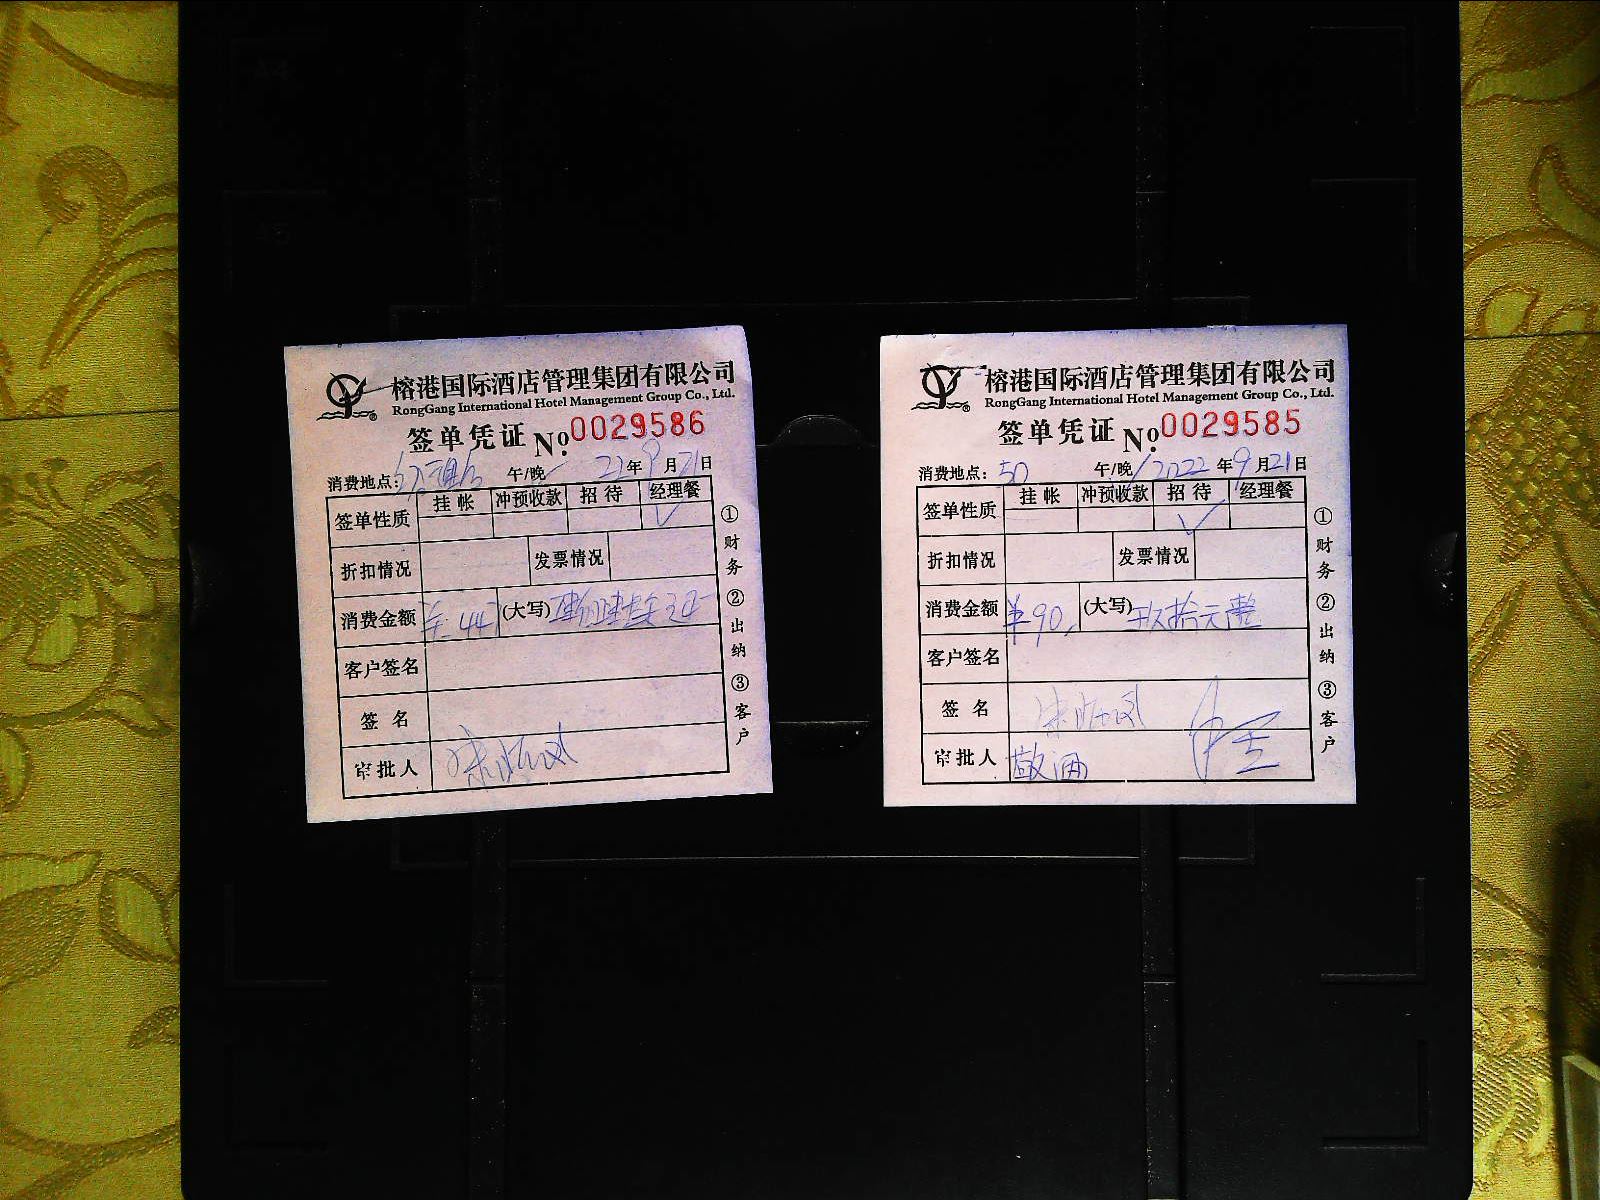 榕港国际酒店管理集团有限公司
RongGang International Hotel Management Group Co., Ltd.
签单凭证 No. 0029586
消费地点: 午/晚 22年9月21日
签单性质 挂帐 冲预收款 招待 经理餐
✓
折扣情况 发票情况
消费金额 (大写)
客户签名
签名
审批人
①财务 ②出纳 ③客户
榕港国际酒店管理集团有限公司
RongGang International Hotel Management Group Co., Ltd.
签单凭证 No. 0029585
消费地点: 50 午/晚 2022年9月21日
签单性质 挂帐 冲预收款 招待 经理餐
✓
折扣情况 发票情况
消费金额 ¥90. (大写) 玖拾元整
客户签名
签名
审批人
①财务 ②出纳 ③客户